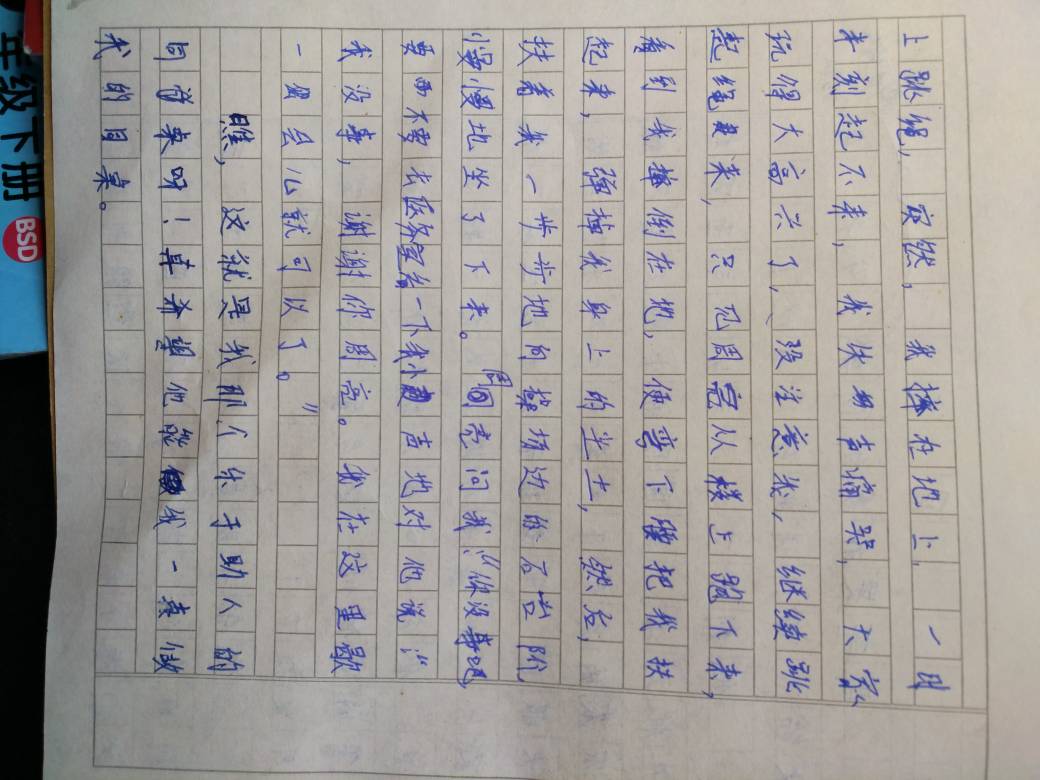 上跳绳，突然，我摔在地上，一时
半刻起不来，我失切声痛哭，大家
玩得太高兴了，没注意我，继续跳
起绳来，只见周亮从楼上跑下来，
看到我摔倒在地，便弯下腰把我扶
起来，弹掉我身上的尘土，然后，
扶着我一步步地向操场边的石台阶
慢慢地坐了下来。周亮问我：“你没事吧，
要不要去医务室给一下我小声地对他说：“
我没事，谢谢你周亮。我在这里歇
一会儿就可以了。”
瞧，这就是我那个乐于助人的
同桌呀！真希望他能做我一直做
我的同桌。
年级下册
BSD